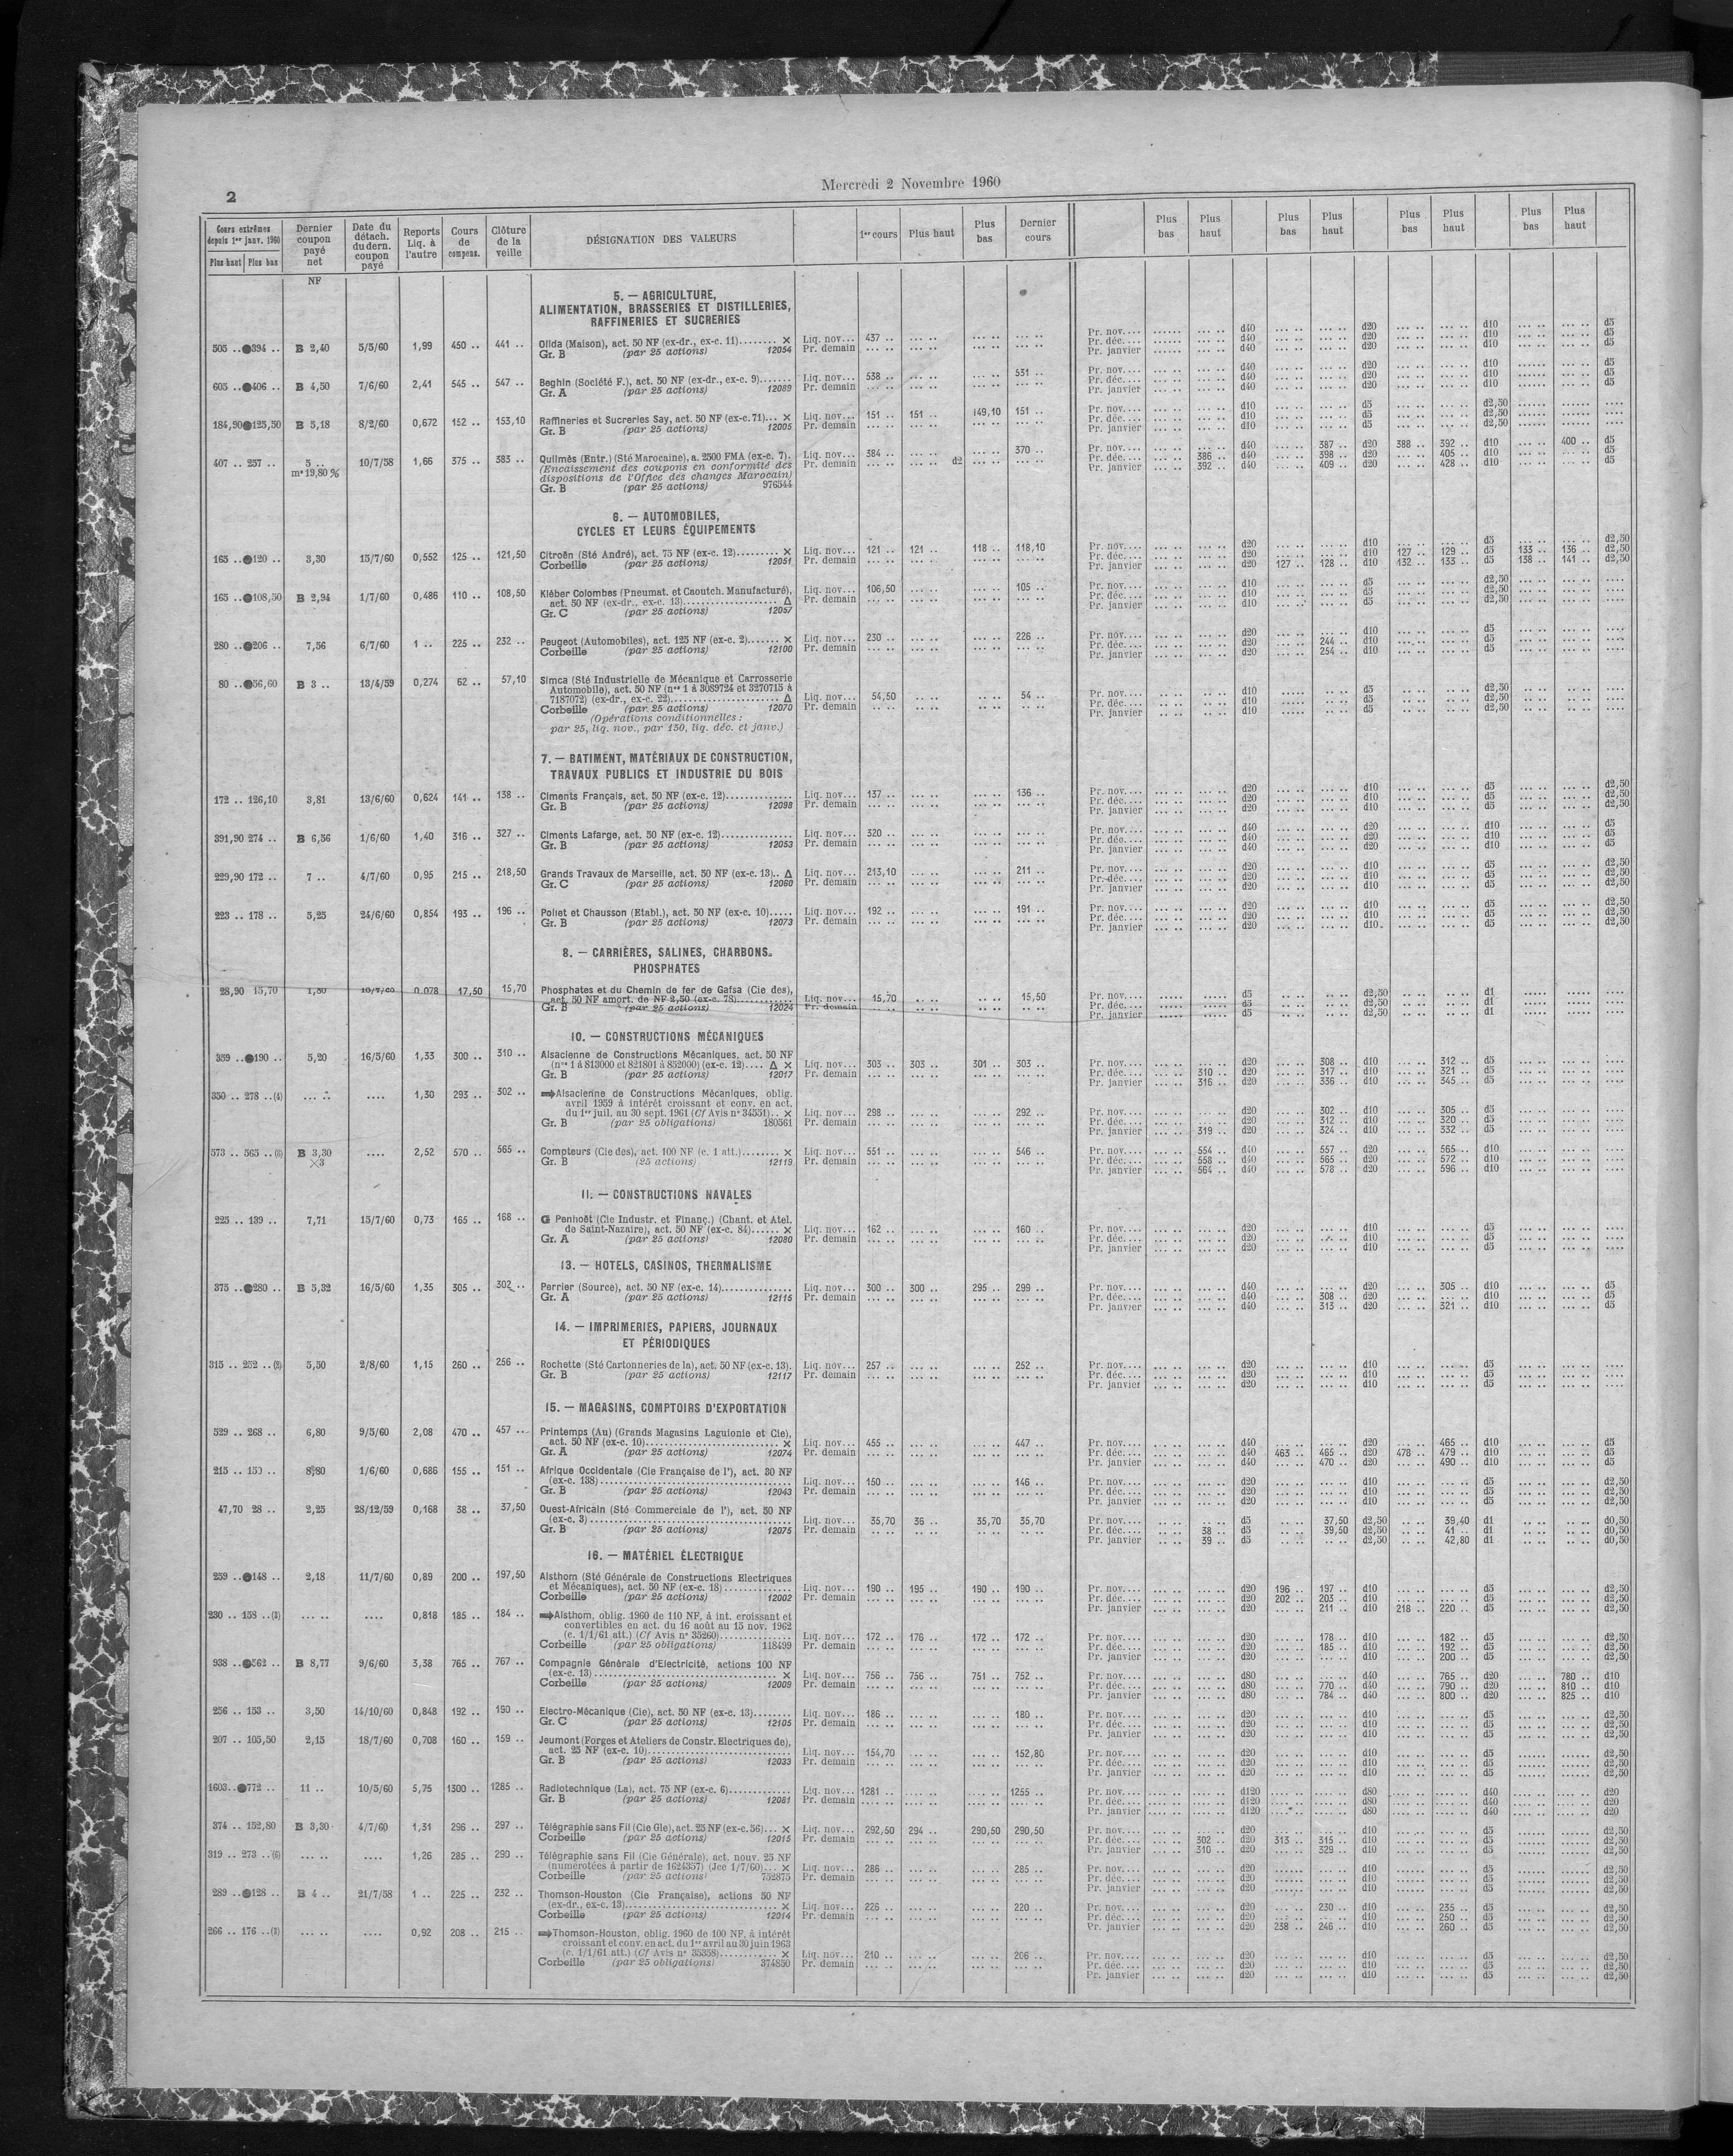 2
Mercredi 2 Novembre 1960
Cours extrêmes depuis 1er janv. 1960 Plus haut Plus bas | Dernier coupon payé net | Date du détach. du dern. coupon payé | Reports Liq. à l'autre | Cours de compens. | Clôture de la veille | DÉSIGNATION DES VALEURS | 1er cours | Plus haut | Plus bas | Dernier cours | Plus bas | Plus haut | Plus bas | Plus haut | Plus bas | Plus haut | Plus bas | Plus haut
NF
5. — AGRICULTURE,
ALIMENTATION, BRASSERIES ET DISTILLERIES,
RAFFINERIES ET SUCRERIES
505 .. 394 .. B 2,40 5/5/60 1,99 450 .. 441 .. Olida (Maison), act. 50 NF (ex-dr., ex-c. 11)........ × Liq. nov... 437 .. Pr. nov.... d40 d20 d10 d5
Gr. B (par 25 actions) 12054 Pr. demain Pr. déc.... d40 d20 d10 d5
Pr. janvier d40 d20 d10 d5
605 .. 406 .. B 4,50 7/6/60 2,41 545 .. 547 .. Beghin (Société F.), act. 50 NF (ex-dr., ex-c. 9)....... Liq. nov... 538 .. 531 .. Pr. nov.... d40 d20 d10 d5
Gr. A (par 25 actions) 12089 Pr. demain Pr. déc.... d40 d20 d10 d5
Pr. janvier d40 d20 d10 d5
184,90 125,50 B 5,18 8/2/60 0,672 152 .. 153,10 Raffineries et Sucreries Say, act. 50 NF (ex-c. 71)... × Liq. nov... 151 .. 151 .. 149,10 151 .. Pr. nov.... d10 d5 d2,50
Gr. B (par 25 actions) 12005 Pr. demain Pr. déc.... d10 d5 d2,50
Pr. janvier d10 d5 d2,50
407 .. 257 .. 5 .. 10/7/58 1,66 375 .. 383 .. Quilmès (Entr.) (Sté Marocaine), a. 2500 FMA (ex-c. 7). Liq. nov... 384 .. 370 .. Pr. nov.... d40 387 .. d20 388 .. 392 .. d10 400 .. d5
mn 19,80 % (Encaissement des coupons en conformité des Pr. demain d2 Pr. déc.... 386 .. d40 398 .. d20 405 .. d10 d5
dispositions de l'Office des changes Marocain) Pr. janvier 392 .. d40 409 .. d20 428 .. d10 d5
Gr. B (par 25 actions) 976544
6. — AUTOMOBILES,
CYCLES ET LEURS ÉQUIPEMENTS
165 .. 120 .. 3,30 15/7/60 0,552 125 .. 121,50 Citroën (Sté André), act. 75 NF (ex-c. 12)......... × Liq. nov... 121 .. 121 .. 118 .. 118,10 Pr. nov.... d20 d10 d5 d2,50
Corbeille (par 25 actions) 12051 Pr. demain Pr. déc.... d20 d10 127 .. 129 .. d5 133 .. 136 .. d2,50
Pr. janvier d20 127 .. 128 .. d10 132 .. 133 .. d5 138 .. 141 .. d2,50
165 .. 108,50 B 2,94 1/7/60 0,486 110 .. 108,50 Kléber Colombes (Pneumat. et Caoutch. Manufacturé), Liq. nov... 106,50 105 .. Pr. nov.... d10 d5 d2,50
act. 50 NF (ex-dr., ex-c. 13)................... Δ Pr. demain Pr. déc.... d10 d5 d2,50
Gr. C (par 25 actions) 12057 Pr. janvier d10 d5 d2,50
280 .. 206 .. 7,56 6/7/60 1 .. 225 .. 232 .. Peugeot (Automobiles), act. 125 NF (ex-c. 2)....... × Liq. nov... 230 .. 226 .. Pr. nov.... d20 d10 d5
Corbeille (par 25 actions) 12100 Pr. demain Pr. déc.... d20 244 .. d10 d5
Pr. janvier d20 254 .. d10 d5
80 .. 56,60 B 3 .. 13/4/59 0,274 62 .. 57,10 Simca (Sté Industrielle de Mécanique et Carrosserie
Automobile), act. 50 NF (nos 1 à 3089724 et 3270715 à
7187072) (ex-dr., ex-c. 22)..................... Δ Liq. nov... 54,50 54 .. Pr. nov.... d10 d5 d2,50
Corbeille (par 25 actions) 12070 Pr. demain Pr. déc.... d10 d5 d2,50
(Opérations conditionnelles : Pr. janvier d10 d5 d2,50
par 25, liq. nov., par 150, liq. déc. et janv.)
7. — BATIMENT, MATÉRIAUX DE CONSTRUCTION,
TRAVAUX PUBLICS ET INDUSTRIE DU BOIS
172 .. 126,10 3,81 13/6/60 0,624 141 .. 138 .. Ciments Français, act. 50 NF (ex-c. 12)............. Liq. nov... 137 .. 136 .. Pr. nov.... d20 d10 d5 d2,50
Gr. B (par 25 actions) 12098 Pr. demain Pr. déc.... d20 d10 d5 d2,50
Pr. janvier d20 d10 d5 d2,50
391,90 274 .. B 6,56 1/6/60 1,40 316 .. 327 .. Ciments Lafarge, act. 50 NF (ex-c. 12).............. Liq. nov... 320 .. Pr. nov.... d40 d20 d10 d5
Gr. B (par 25 actions) 12053 Pr. demain Pr. déc.... d40 d20 d10 d5
Pr. janvier d40 d20 d10 d5
229,90 172 .. 7 .. 4/7/60 0,95 215 .. 218,50 Grands Travaux de Marseille, act. 50 NF (ex-c. 13).. Δ Liq. nov... 213,10 211 .. Pr. nov.... d20 d10 d5 d2,50
Gr. C (par 25 actions) 12060 Pr. demain Pr. déc.... d20 d10 d5 d2,50
Pr. janvier d20 d10 d5 d2,50
223 .. 178 .. 5,25 24/6/60 0,854 193 .. 196 .. Poliet et Chausson (Etabl.), act. 50 NF (ex-c. 10)..... Liq. nov... 192 .. 191 .. Pr. nov.... d20 d10 d5 d2,50
Gr. B (par 25 actions) 12073 Pr. demain Pr. déc.... d20 d10 d5 d2,50
Pr. janvier d20 d10 d5 d2,50
8. — CARRIÈRES, SALINES, CHARBONS.
PHOSPHATES
28,90 15,70 1,50 0,078 17,50 15,70 Phosphates et du Chemin de fer de Gafsa (Cie des),
act. 50 NF amort. de NF 2,50 (ex-c. 78)............ Liq. nov... 15,70 15,50 Pr. nov.... d5 d2,50 d1
Gr. B (par 25 actions) 12024 Pr. demain Pr. déc.... d5 d2,50 d1
Pr. janvier d5 d2,50 d1
10. — CONSTRUCTIONS MÉCANIQUES
359 .. 190 .. 5,20 16/5/60 1,33 300 .. 310 .. Alsacienne de Constructions Mécaniques, act. 50 NF
(nos 1 à 813000 et 821801 à 852000) (ex-c. 12).... Δ × Liq. nov... 303 .. 303 .. 301 .. 303 .. Pr. nov.... d20 308 .. d10 312 .. d5
Gr. B (par 25 actions) 12017 Pr. demain Pr. déc.... 310 .. d20 317 .. d10 321 .. d5
Pr. janvier 316 .. d20 336 .. d10 345 .. d5
350 .. 278 ..(4) 1,30 293 .. 302 .. ⇒Alsacienne de Constructions Mécaniques, oblig.
avril 1959 à intérêt croissant et conv. en act.
du 1er juil. au 30 sept. 1961 (Cf Avis n° 34551).. × Liq. nov... 298 .. 292 .. Pr. nov.... d20 302 .. d10 305 .. d5
Gr. B (par 25 obligations) 180561 Pr. demain Pr. déc.... d20 312 .. d10 320 .. d5
Pr. janvier 319 .. d20 324 .. d10 332 .. d5
573 .. 565 .. B 3,30 2,52 570 .. 565 .. Compteurs (Cie des), act. 100 NF (c. 1 att.)........ × Liq. nov... 551 .. 546 .. Pr. nov.... 554 .. d40 557 .. d20 565 .. d10
×3 Gr. B (25 actions) 12119 Pr. demain Pr. déc.... 558 .. d40 565 .. d20 572 .. d10
Pr. janvier 564 .. d40 578 .. d20 596 .. d10
11. — CONSTRUCTIONS NAVALES
225 .. 139 .. 7,71 15/7/60 0,73 165 .. 168 .. G Penhoët (Cie Industr. et Financ.) (Chant. et Atel.
de Saint-Nazaire), act. 50 NF (ex-c. 84)...... × Liq. nov... 162 .. 160 .. Pr. nov.... d20 d10 d5
Gr. A (par 25 actions) 12080 Pr. demain Pr. déc.... d20 d10 d5
Pr. janvier d20 d10 d5
13. — HOTELS, CASINOS, THERMALISME
375 .. 280 .. B 5,32 16/5/60 1,35 305 .. 302 .. Perrier (Source), act. 50 NF (ex-c. 14).............. Liq. nov... 300 .. 300 .. 295 .. 299 .. Pr. nov.... d40 d20 305 .. d10 d5
Gr. A (par 25 actions) 12115 Pr. demain Pr. déc.... d40 308 .. d20 d10 d5
Pr. janvier d40 313 .. d20 321 .. d10 d5
14. — IMPRIMERIES, PAPIERS, JOURNAUX
ET PÉRIODIQUES
315 .. 252 .. 5,50 2/8/60 1,15 260 .. 256 .. Rochette (Sté Cartonneries de la), act. 50 NF (ex-c. 13). Liq. nov... 257 .. 252 .. Pr. nov.... d20 d10 d5
Gr. B (par 25 actions) 12117 Pr. demain Pr. déc.... d20 d10 d5
Pr. janvier d20 d10 d5
15. — MAGASINS, COMPTOIRS D'EXPORTATION
529 .. 268 .. 6,80 9/5/60 2,08 470 .. 457 .. Printemps (Au) (Grands Magasins Laguionie et Cie),
act. 50 NF (ex-c. 10)......................... × Liq. nov... 455 .. 447 .. Pr. nov.... d40 d20 465 .. d10 d5
Gr. A (par 25 actions) 12074 Pr. demain Pr. déc.... d40 463 .. 465 .. d20 478 .. 479 .. d10 d5
Pr. janvier d40 470 .. d20 490 .. d10 d5
215 .. 150 .. 8,80 1/6/60 0,686 155 .. 151 .. Afrique Occidentale (Cie Française de l'), act. 30 NF
(ex-c. 138)................................... Liq. nov... 150 .. 146 .. Pr. nov.... d20 d10 d5 d2,50
Gr. B (par 25 actions) 12043 Pr. demain Pr. déc.... d20 d10 d5 d2,50
Pr. janvier d20 d10 d5 d2,50
47,70 28 .. 2,25 28/12/59 0,168 38 .. 37,50 Ouest-Africain (Sté Commerciale de l'), act. 50 NF
(ex-c. 3)..................................... Liq. nov... 35,70 36 .. 35,70 35,70 Pr. nov.... d5 37,50 d2,50 39,40 d1 d0,50
Gr. B (par 25 actions) 12075 Pr. demain Pr. déc.... 38 .. d5 39,50 d2,50 41 .. d1 d0,50
Pr. janvier 39 .. d5 d2,50 42,80 d1 d0,50
16. — MATÉRIEL ÉLECTRIQUE
259 .. 148 .. 2,18 11/7/60 0,89 200 .. 197,50 Alsthom (Sté Générale de Constructions Electriques
et Mécaniques), act. 50 NF (ex-c. 18)............. Liq. nov... 190 .. 195 .. 190 .. 190 .. Pr. nov.... d20 196 .. 197 .. d10 d5 d2,50
Corbeille (par 25 actions) 12002 Pr. demain Pr. déc.... d20 202 .. 203 .. d10 d5 d2,50
Pr. janvier d20 211 .. d10 218 .. 220 .. d5 d2,50
230 .. 158 ..(3) 0,818 185 .. 184 .. ⇒Alsthom, oblig. 1960 de 110 NF, à int. croissant et
convertibles en act. du 16 août au 15 nov. 1962
(c. 1/1/61 att.) (Cf Avis n° 35260).............. Liq. nov... 172 .. 176 .. 172 .. 172 .. Pr. nov.... d20 178 .. d10 182 .. d5 d2,50
Corbeille (par 25 obligations) 118499 Pr. demain Pr. déc.... d20 185 .. d10 192 .. d5 d2,50
Pr. janvier d20 d10 200 .. d5 d2,50
938 .. 562 .. B 8,77 9/6/60 3,38 765 .. 767 .. Compagnie Générale d'Electricité, actions 100 NF
(ex-c. 13)................................... × Liq. nov... 756 .. 756 .. 751 .. 752 .. Pr. nov.... d80 d40 765 .. d20 780 .. d10
Corbeille (par 25 actions) 12009 Pr. demain Pr. déc.... d80 770 .. d40 790 .. d20 810 .. d10
Pr. janvier d80 784 .. d40 800 .. d20 825 .. d10
256 .. 153 .. 3,50 14/10/60 0,848 192 .. 190 .. Electro-Mécanique (Cie), act. 50 NF (ex-c. 13)........ Liq. nov... 186 .. 180 .. Pr. nov.... d20 d10 d5 d2,50
Gr. C (par 25 actions) 12105 Pr. demain Pr. déc.... d20 d10 d5 d2,50
Pr. janvier d20 d10 d5 d2,50
207 .. 105,50 2,15 18/7/60 0,708 160 .. 159 .. Jeumont (Forges et Ateliers de Constr. Electriques de),
act. 25 NF (ex-c. 10)........................... Liq. nov... 154,70 152,80 Pr. nov.... d20 d10 d5 d2,50
Gr. B (par 25 actions) 12033 Pr. demain Pr. déc.... d20 d10 d5 d2,50
Pr. janvier d20 d10 d5 d2,50
1603.. 772 .. 11 .. 10/5/60 5,75 1300 .. 1285 .. Radiotechnique (La), act. 75 NF (ex-c. 6)............. Liq. nov... 1281 .. 1255 .. Pr. nov.... d120 d80 d40 d20
Gr. B (par 25 actions) 12081 Pr. demain Pr. déc.... d120 d80 d40 d20
Pr. janvier d120 d80 d40 d20
374 .. 152,80 B 3,30 4/7/60 1,31 296 .. 297 .. Télégraphie sans Fil (Cie Gle), act. 25 NF (ex-c. 56)... × Liq. nov... 292,50 294 .. 290,50 290,50 Pr. nov.... d20 d10 d5 d2,50
Corbeille (par 25 actions) 12015 Pr. demain Pr. déc.... 302 .. d20 313 .. 315 .. d10 d5 d2,50
Pr. janvier 310 .. d20 329 .. d10 d5 d2,50
319 .. 273 ..(6) 1,26 285 .. 290 .. Télégraphie sans Fil (Cie Générale), act. nouv. 25 NF
(numérotées à partir de 1624357) (Jce 1/7/60)... × Liq. nov... 286 .. 285 .. Pr. nov.... d20 d10 d5 d2,50
Corbeille (par 25 actions) 752875 Pr. demain Pr. déc.... d20 d10 d5 d2,50
Pr. janvier d20 d10 d5 d2,50
289 .. 128 .. B 4 .. 21/7/58 1 .. 225 .. 232 .. Thomson-Houston (Cie Française), actions 50 NF
(ex-dr., ex-c. 13)............................. × Liq. nov... 226 .. 220 .. Pr. nov.... d20 230 .. d10 235 .. d5 d2,50
Corbeille (par 25 actions) 12014 Pr. demain Pr. déc.... d20 d10 250 .. d5 d2,50
Pr. janvier d20 238 .. 246 .. d10 260 .. d5 d2,50
266 .. 176 ..(3) 0,92 208 .. 215 .. ⇒Thomson-Houston, oblig. 1960 de 100 NF, à intérêt
croissant et conv. en act. du 1er avril au 30 juin 1963
(c. 1/1/61 att.) (Cf Avis n° 35358)............ × Liq. nov... 210 .. 206 .. Pr. nov.... d20 d10 d5 d2,50
Corbeille (par 25 obligations) 374850 Pr. demain Pr. déc.... d20 d10 d5 d2,50
Pr. janvier d20 d10 d5 d2,50